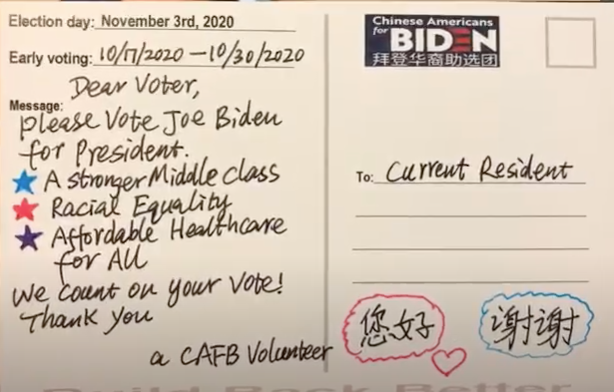 Election day: November 3rd, 2020
Early voting: 10/17/2020 — 10/30/2020
Dear Voter,
Message:
please Vote Joe Biden
for President.
A stronger Middle class
Racial Equality
Affordable Healthcare
for All
We count on your Vote!
Thank you
a CAFB Volunteer
Chinese Americans
for BIDEN
拜登华裔助选团
To: Current Resident
您好
谢谢
Build Back Better